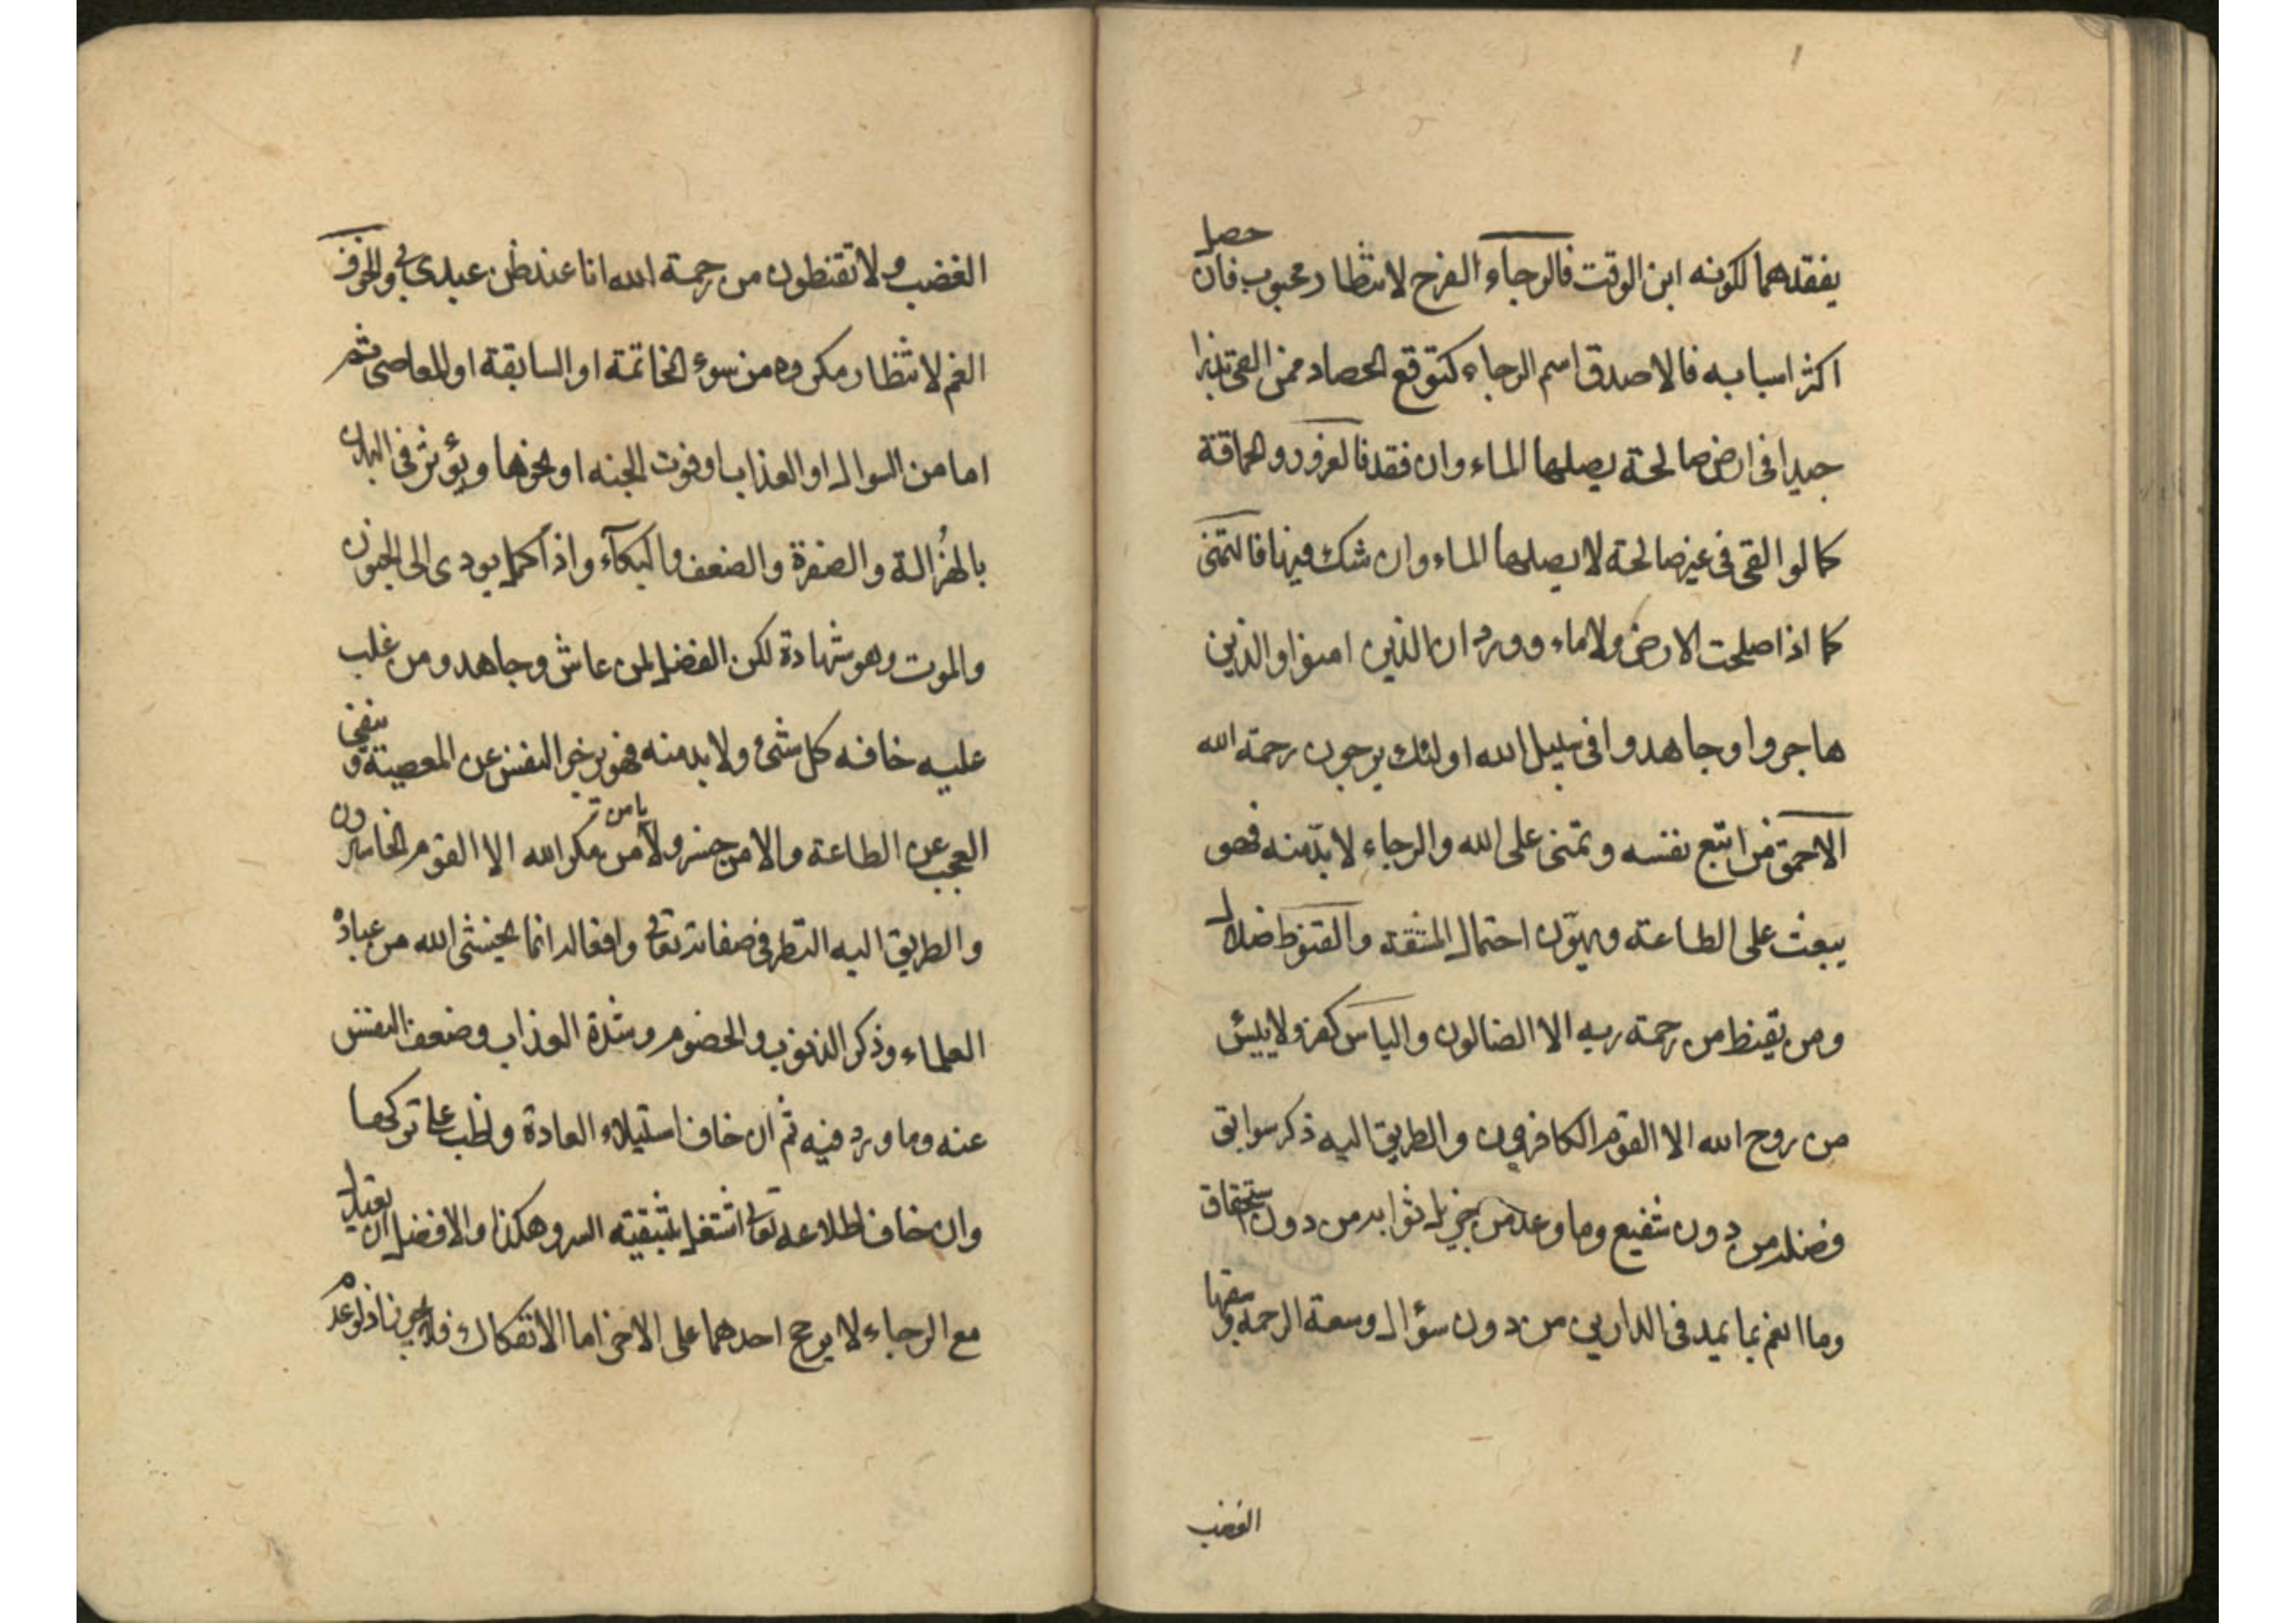 يفقدهما لكونه ابن الوقت فالرجاء الفرح لانتظار محبوب فان حصل
اكثر اسبابه فالاصدق اسم الرجاء كتوقع الحصاد ممن القى بذرا
جيدا فى ارض صالحة يصلها الماء وان فقد فالغرور والحماقة
كما لو القى فى غير صالحة لا يصلها الماء وان شك فيها فالتمنى
كما اذا صلحت الارض ولا ماء وورد ان الذين امنوا والذين
هاجروا وجاهدوا فى سبيل الله اولئك يرجون رحمة الله
الاحمق من اتبع نفسه وتمنى على الله والرجاء لا بدّ منه فهو
يبعث على الطاعة ويهوّن احتمال المشقة والقنوط ضلال
ومن يقنط من رحمة ربه الا الضالون والياس كفر ولا ييئس
من روح الله الا القوم الكافرون والطريق اليه ذكر سوابق
فضله من دون شفيع وما وعد من جزيل ثوابه من دون استحقاق
وما انعم بما يمد فى الدارين من دون سؤال وسعة الرحمة وسبقها
الغضب
الغضب ولا تقنطون من رحمة الله انا عند ظن عبدى بى والخوف
الغم لانتظار مكروه من سوء الخاتمة او السابقة او المعاصى ثم
اما من السوال او العذاب او فوت الجنه او نحوها ويؤثر فى البدن
بالهُزالة والصفرة والضعف والبكآء واذا كمل يودى الى الجنون
والموت وهو شهادة لكن الفضل لمن عاش وجاهد ومن غلب
عليه خافه كل شئ ولا بد منه فهو يزجر النفس عن المعصية وينفى
العجب عن الطاعة والامن خسر ولا يامن مكر الله الا القوم الخاسرون
والطريق اليه النظر فى صفاته تعالى وافعاله انما يخشى الله من عباده
العلماء وذكر الذنوب والخصوم وشدة العذاب وضعف النفس
عنه وما ورد فيه ثم ان خاف استيلاء العادة واظب على تركها
وان خاف اطلاعه تعالى اشتغل بتنقية السر وهكذا والافضل ان يعتدل
مع الرجاء لا يرجح احدهما على الاخر اما الانفكاك فلا